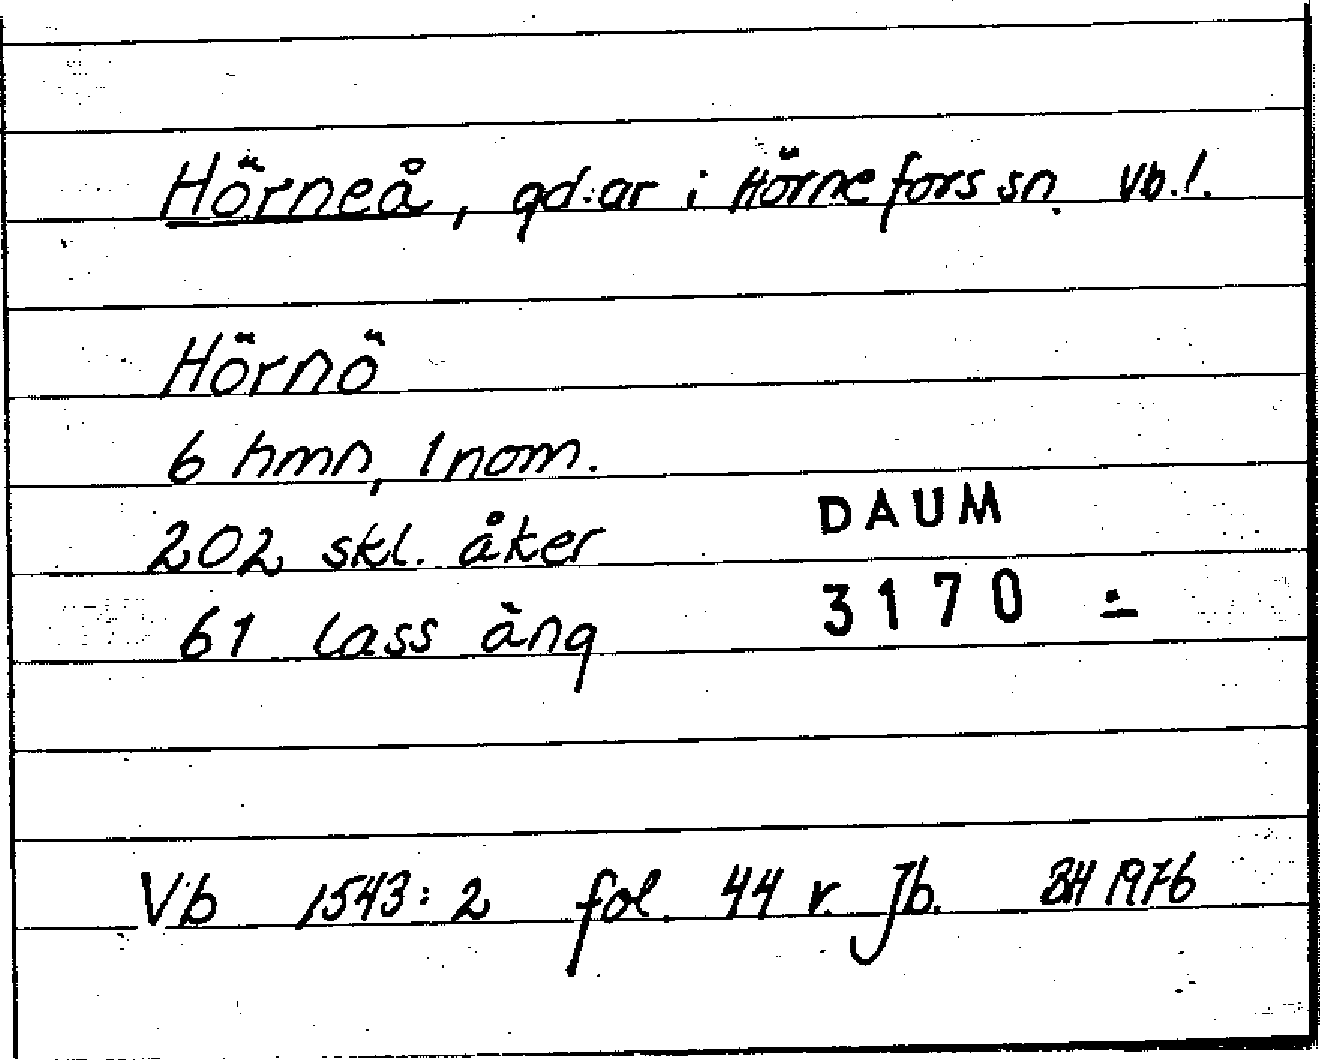 Hörneå, gd:ar i Hörnefors sn. Vb.l.
Hörnö
6 hmn, 1 nom.
202 skl. åker
61 lass äng
DAUM
3170 :
Vb 1543:2 fol. 44 r. Jb. BH 1976